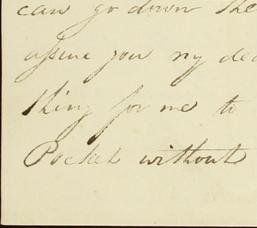 can go down the
assure you my dea
thing for me to
Pocket without